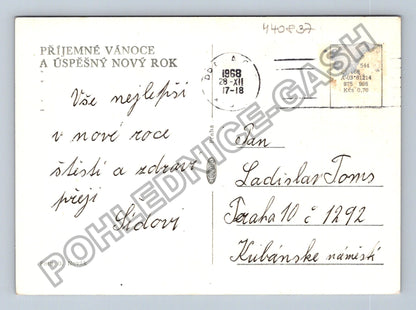 440837
PŘÍJEMNÉ VÁNOCE
A ÚSPĚŠNÝ NOVÝ ROK
1968
28-XII
17-18
Vše nejlepší
v nové roce
štěstí a zdraví
přejí
Šídovi
Pan
Ladislav Toms
Praha 10 č 1292
Kubánske náměstí
POHLEDNICE-GASH